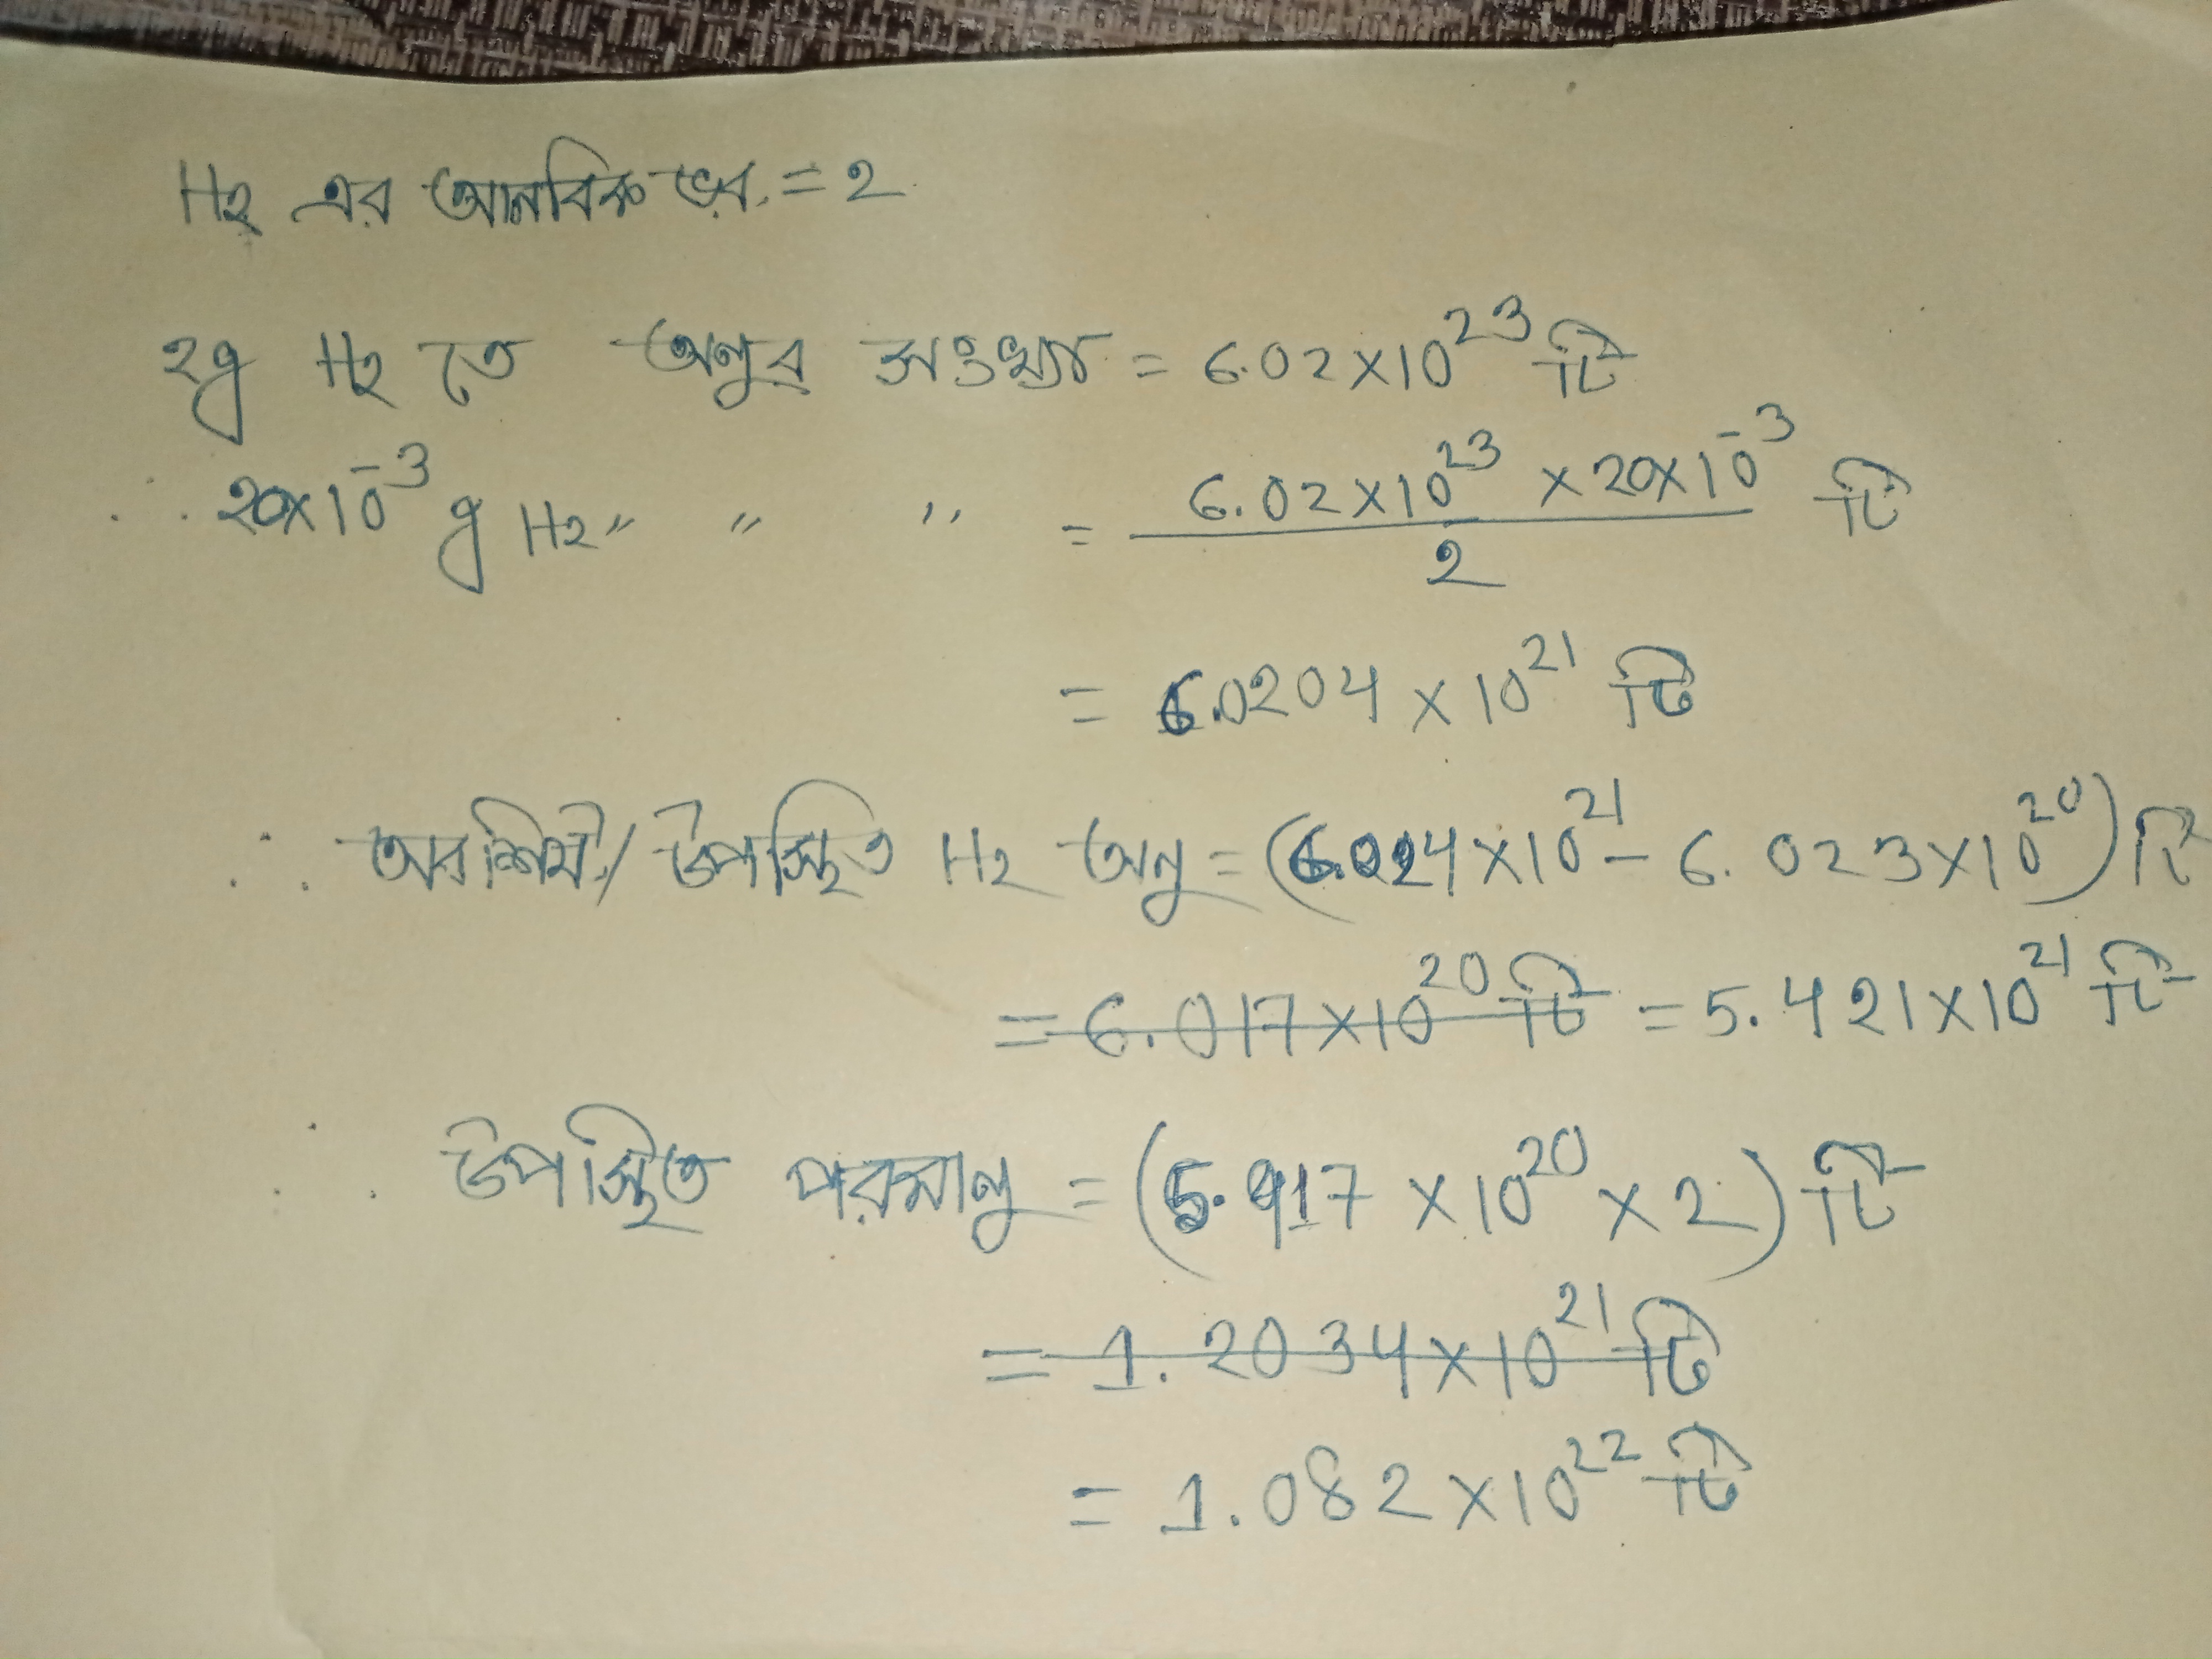 H2 এর আনবিক ভর. = 2
2g H2 তে অনুর সংখ্যা = 6.02×10^23 টি
∴ 20×10^-3 g H2 " " " = 6.02×10^23 × 20×10^-3 / 2 টি
= 6.0204 × 10^21 টি
∴ অবশিষ্ট / উপস্থিত H2 অনু = (6.024×10^21 - 6.023×10^20) টি
= 6.017×10^20 টি = 5.421×10^21 টি
∴ উপস্থিত পরমানু = (5.417 × 10^20 × 2) টি
= 1.2034×10^21 টি
= 1.082×10^22 টি